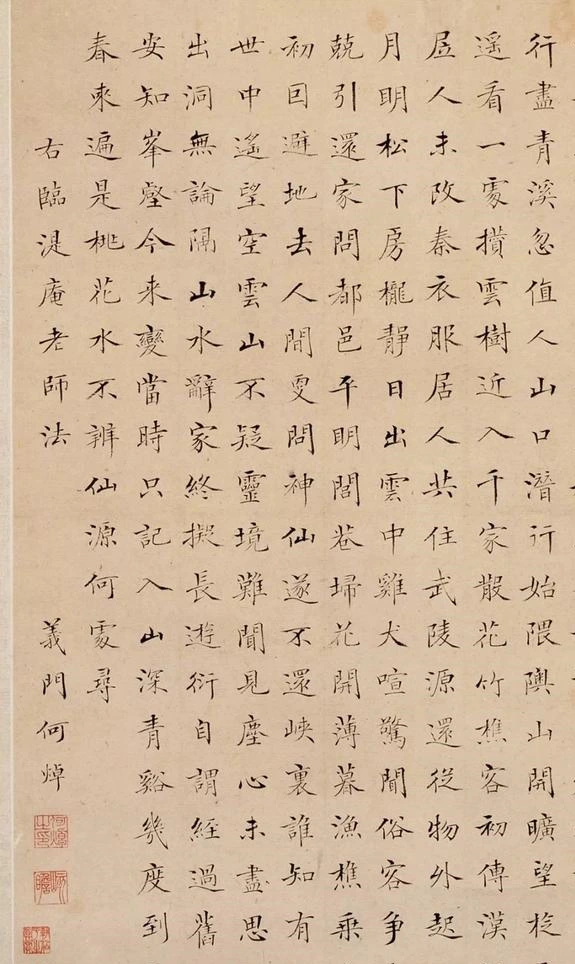 行盡青溪忽值人山口潛行始隈隩山開曠望旋
遥看一處攢雲樹近入千家散花竹樵客初傳漢
居人未改秦衣服居人共住武陵源還從物外起
月明松下房櫳靜日出雲中雞犬喧驚聞俗客爭
兢引還家問都邑平明閭巷埽花開薄暮漁樵乘
初因避地去人間更問神仙遂不還峽裏誰知有
世中遙望空雲山不疑靈境難聞見塵心未盡思
出洞無論隔山水辭家終擬長遊衍自謂經過舊
安知峯壑今来變當時只記入山深青谿幾度到
春來遍是桃花水不辨仙源何處尋
右臨湜庵老師法 義門何焯
何焯之印
屺瞻